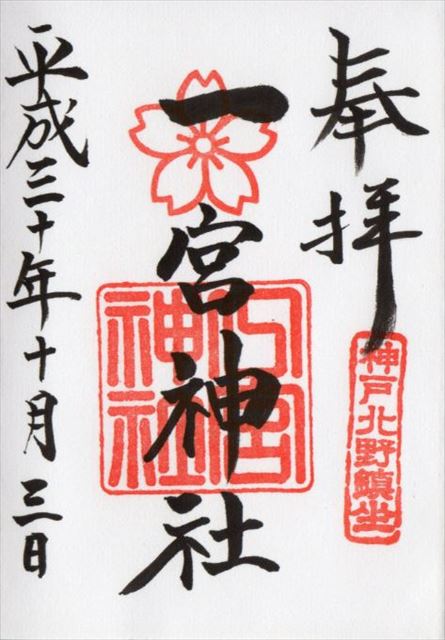 奉拝
神戸北野鎮坐
一宮神社
一宮神社
平成三十年十月三日